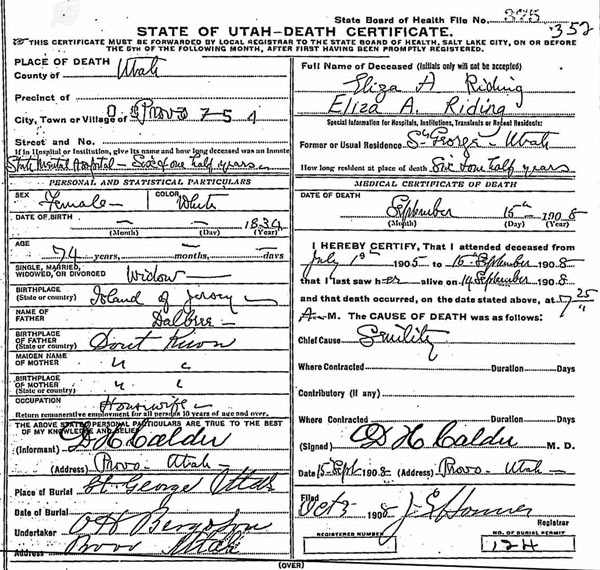 State Board of Health File No. 352
STATE OF UTAH-DEATH CERTIFICATE.
THIS CERTIFICATE MUST BE FORWARDED BY LOCAL REGISTRAR TO THE STATE BOARD OF HEALTH, SALT LAKE CITY, ON OR BEFORE
THE 5TH OF THE FOLLOWING MONTH, AFTER FIRST HAVING BEEN PROMPTLY REGISTERED.
PLACE OF DEATH
County of Utah
Precinct of
City, Town or Village of Provo 754
Street and No.
If in Hospital or Institution, give its name and how long deceased was an inmate
State Mental Hospital - Six & one half years
PERSONAL AND STATISTICAL PARTICULARS
SEX Female COLOR White
DATE OF BIRTH — — 1834
(Month) (Day) (Year)
AGE 74 years, — months, — days
SINGLE, MARRIED, WIDOWED, OR DIVORCED Widow
BIRTHPLACE (State or country) Island of Jersey
NAME OF FATHER
BIRTHPLACE OF FATHER (State or country) Dont Know
MAIDEN NAME OF MOTHER " "
BIRTHPLACE OF MOTHER (State or country) " "
OCCUPATION Housewife
Return remunerative employment for all persons 10 years of age and over.
THE ABOVE STATED PERSONAL PARTICULARS ARE TRUE TO THE BEST
OF MY KNOWLEDGE AND BELIEF
(Informant) D H Calder
(Address) Provo - Utah
Place of Burial St. George Utah
Date of Burial
Undertaker O H Berg & Son
Address Provo Utah
Full Name of Deceased (Initials only will not be accepted)
Eliza A Riding
Eliza A. Riding
Special Information for Hospitals, Institutions, Transients or Recent Residents:
Former or Usual Residence St George - Utah
How long resident at place of death Six & one half years
MEDICAL CERTIFICATE OF DEATH
DATE OF DEATH
September 15th 1908
(Month) (Day) (Year)
I HEREBY CERTIFY, That I attended deceased from
July 1st 1905 to 15th September 1908
that I last saw her alive on 14 September 1908
and that death occurred, on the date stated above, at 7 25
A M. The CAUSE OF DEATH was as follows:
Chief Cause Senility
Where Contracted Duration Days
Contributory (If any)
Where Contracted Duration Days
(Signed) D H Calder M. D.
Date 15 Sept 1908 (Address) Provo - Utah
Filed Oct 5 1908 J. E. Hosmer
Registrar
REGISTERED NUMBER
NO. OF BURIAL PERMIT
124
(OVER)